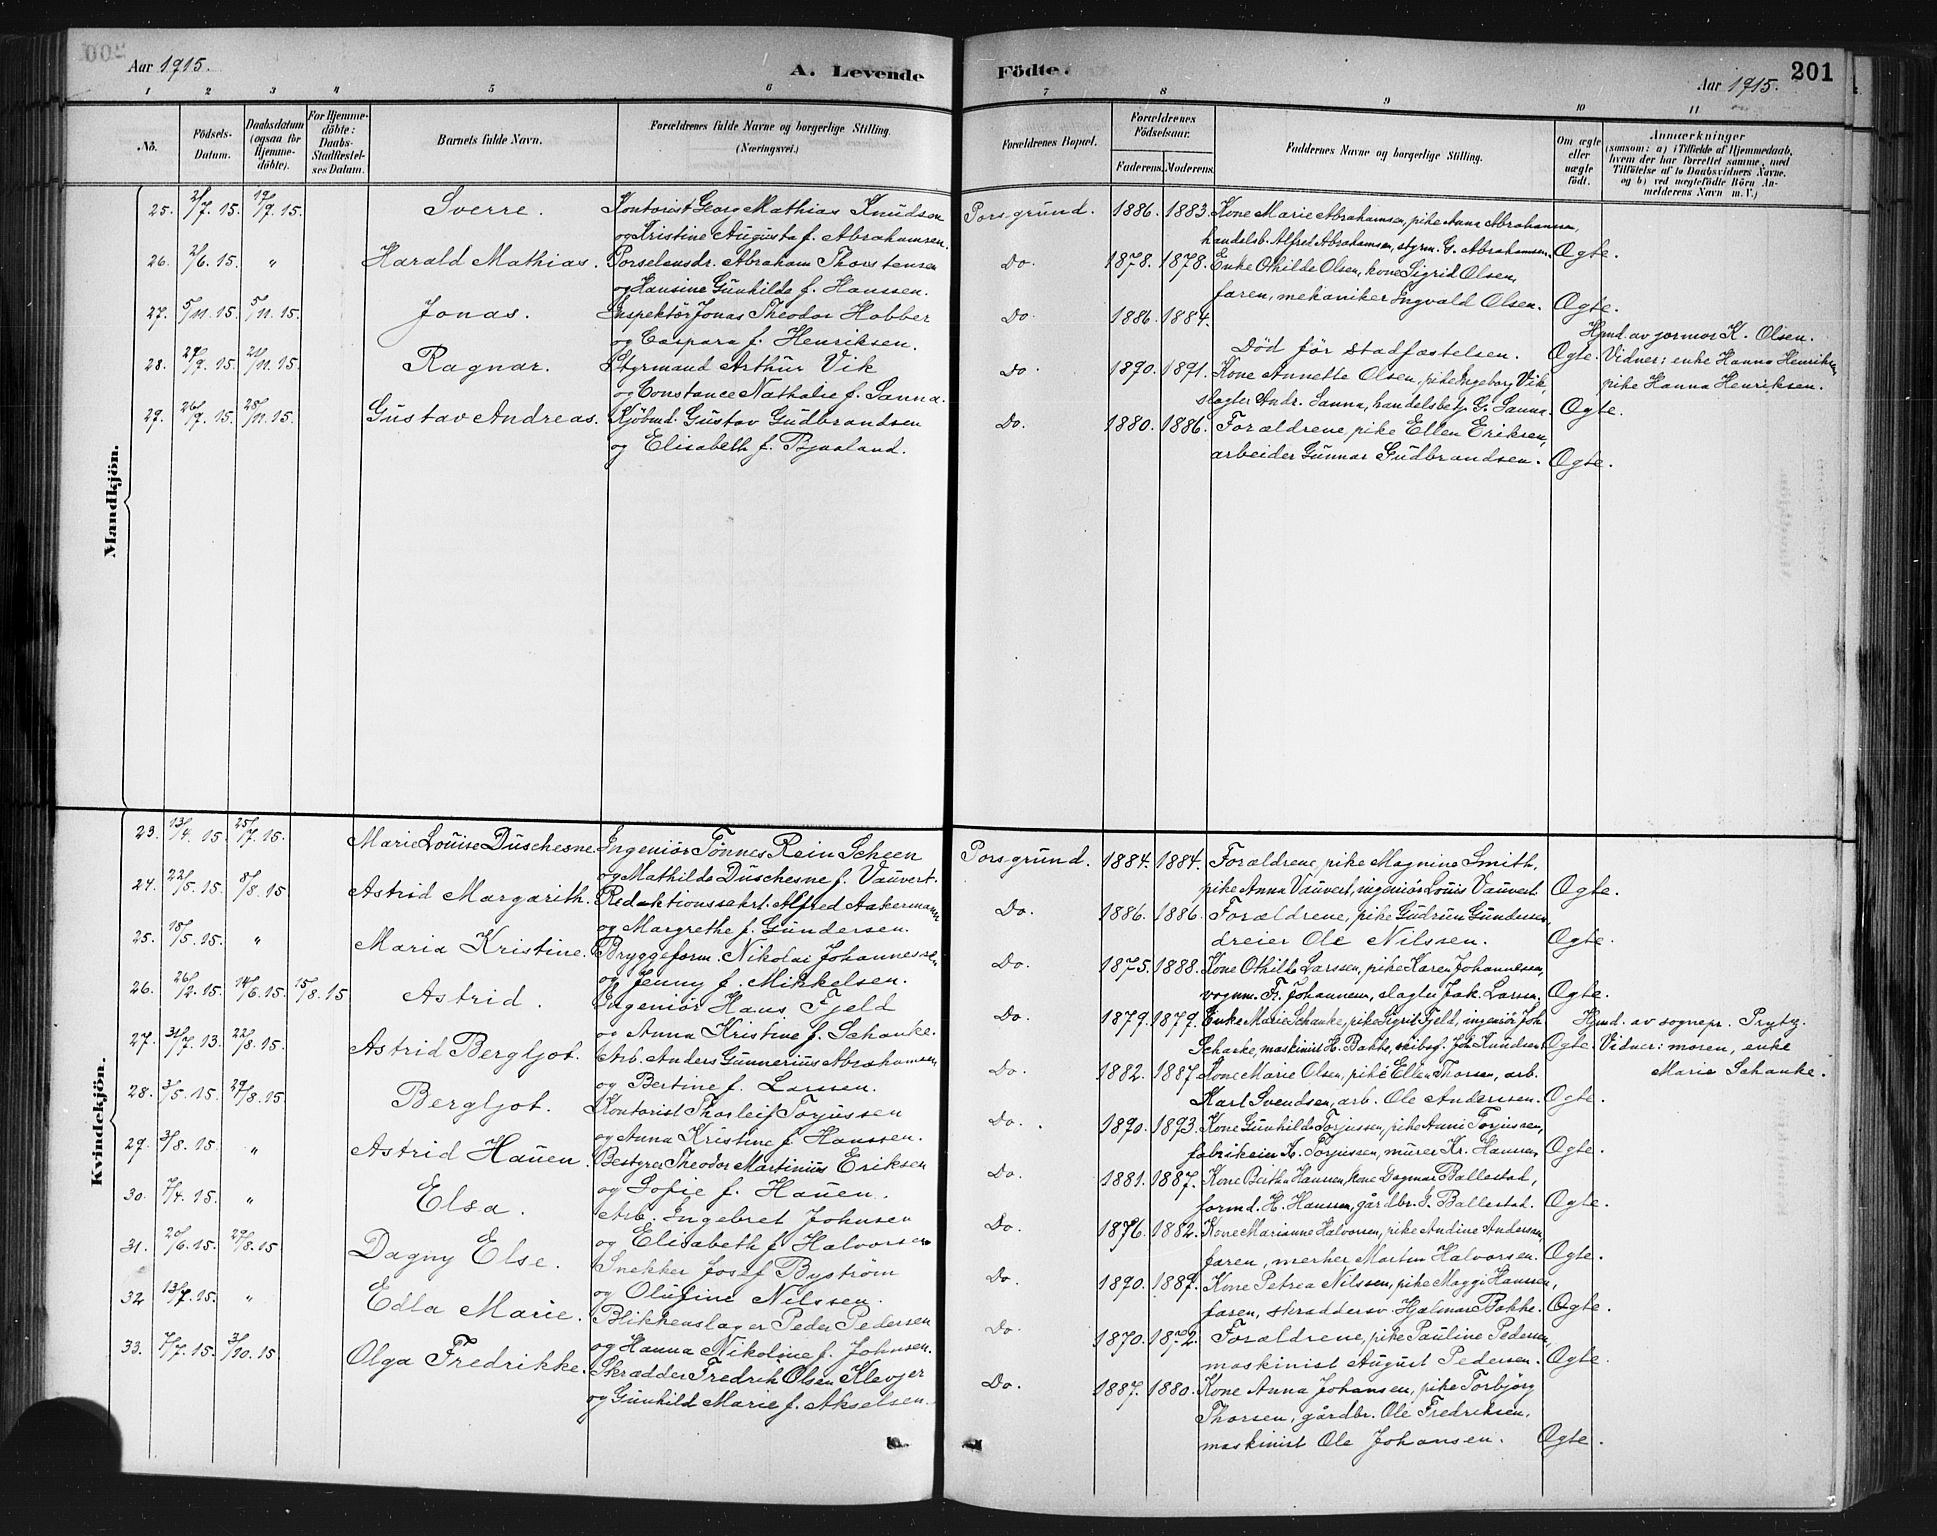 Aar 1915.
A. Levende Födte.
Aar 1915.
201
1 2 3 4 5 6 7 8 9 10 11
No.
Födsels-Datum.
Daabsdatum (ogsaa for Hjemmedöbte).
For Hjemmedöbte: Daabs-Stadfæstelses Datum.
Barnets fulde Navn.
Forældrenes fulde Navne og borgerlige Stilling.
(Næringsvei.)
Forældrenes Bopæl.
Forældrenes Födselsaar.
Faderens. Moderens.
Faddernes Navne og borgerlige Stilling.
Om ægte eller uægte födt.
Anmærkninger
(saasom: a) i Tilfælde af Hjemmedaab, hvem der har forrettet samme, med Tilföielse af to Daabsvidners Navne. og b) ved uægtefödte Börn Anmelderens Navn m. V.)
Mandkjön.
25. 2/7. 15. 19/9. 15. Sverre. Kontorist Georg Mathias Knudsen Porsgrund. 1886. 1883. Kone Marie Abrahamsen, pike Anna Abrahamsen,
og Kristine Augusta f. Abrahamsen. handelsb. Alfred Abrahamsen, styrm. G. Abrahamsen. Ogte.
26. 2/6. 15. " Harald Mathias. Porselensdr. Abraham Thorstensen Do. 1878. 1878. Enke Othilde Olsen, kone Sigrid Olsen,
og Hansine Gunhilde f. Hanssen. faren, mekaniker Ingvald Olsen. Ogte.
27. 5/11. 15. 5/11. 15. Jonas. Inspektör Jonas Theodor Hobber Do. 1886. 1884. Hjmd. av jormor K. Olsen.
og Caspara f. Henriksen. Död för stadfæstelsen. Ogte. Vidner: enke Hanna Henriksen,
pike Hanna Henriksen.
28. 29/9. 15. 21/11. 15. Ragnar. Styrmand Arthur Vik Do. 1890. 1891. Kone Annette Olsen, pike Ingeborg Vik,
og Constance Nathalie f. Sanna. slagter Andr. Sanna, handelsbetj. G. Sanna. Ogte.
29. 26/9. 15. 28/11. 15. Gustav Andreas. Kjöbmd. Gustav Gudbrandsen Do. 1880. 1886. Forældrene, pike Ellen Eriksen,
og Elisabeth f. Bjaaland. arbeider Gunnar Gudbrandsen. Ogte.
Kvindekjön.
23. 13/4. 15. 25/7. 15. Marie Louise Duschesne Ingeniör Tönnes Rein Scheen Porsgrund. 1884. 1884. Forældrene, pike Magnine Smith,
og Mathilde Duschesne f. Vauvert. pike Anna Vauvert, ingeniör Louis Vauvert. Ogte.
24. 22/5. 15. 8/8. 15 Astrid Margarith. Redaktionssekrt. Alfred Aakermann Do. 1886. 1886. Forældrene, pike Gudrun Gundersen,
og Margrethe f. Gundersen. dreier Ole Nilssen. Ogte.
25. 18/5. 15. " Maria Kristine. Bryggeform. Nikolai Johannessen Do. 1875. 1888. Kone Othilde Larssen, pike Karen Johannessen,
og Jenny f. Mikkelsen. vognm. Fr. Johannesen, slagter Jak. Larsen. Ogte.
26. 26/2. 15. 14/6. 15. 15/8. 15 Astrid. Ingeniör Hans Fjeld Do. 1879. 1879. Enke Marie Schanke, pike Sigrid Fjeld, ingeniör Joh. Hjmd. av sognepr. Prytz.
og Anna Kristine f. Schanke. Schanke, maskinist H. Bakke, skibsf. Joh. Knudsen. Ogte. Vidner: moren, enke
Marie Schanke.
27. 31/7. 13. 22/8. 15. Astrid Bergljot. Arb. Anders Gunnerius Abrahamsen Do. 1882. 1887 Kone Marie Olsen, pike Ellen Thorsen, arb.
og Bertine f. Larssen. Karl Svendsen, arb. Ole Anderssen. Ogte.
28. 3/5. 15. 29/8. 15 Bergljot. Kontorist Thorleif Torjussen Do. 1890. 1893. Kone Gunhilde Torjussen, pike Anni Torjussen,
og Anna Kristine f. Hanssen. Torjussen, murer Kr. Hanssen. Ogte.
29. 3/8. 15. " Astrid Hauen. Bestyrer Theodor Martinius Eriksen Do. 1881. 1887. Kone Bertha Hanssen, kone Dagmar Ballestad,
og Sofie f. Hauen. formd. H. Hanssen, gårdbr. G. Ballestad. Ogte.
30. 7/4. 15. " Elsa. Arb. Ingebret Johnsen Do. 1876. 1882. Kone Marianne Halvorsen, pike Andine Andersen,
og Elisabeth f. Halvorsen faren, merker Martin Halvorsen. Ogte.
31. 20/6. 15. 29/8. 15 Dagny Else. Snekker Josef Byström Do. 1890. 1887. Kone Petrea Nilssen, pike Maggi Hanssen,
og Olufine Nilssen. faren, skräddersv. Hjalmar Bakke. Ogte.
32 13/7. 15. " Edla Marie. Blikkenslager Peder Pedersen Do. 1870. 1872. Forældrene, pike Pauline Pedersen,
og Hanna Nikoline f. Johnsen. maskinist August Pedersen. Ogte.
33. 7/7. 15. 3/10. 15 Olga Fredrikke. Skrædder Fredrik Olsen Klevjer Do. 1887. 1880. Kone Anna Johansen, pike Torbjörg
og Gunhild Marie f. Akselsen. Thorsen, gårdbr. Ole Fredriksen,
maskinist Ole Johansen. Ogte.